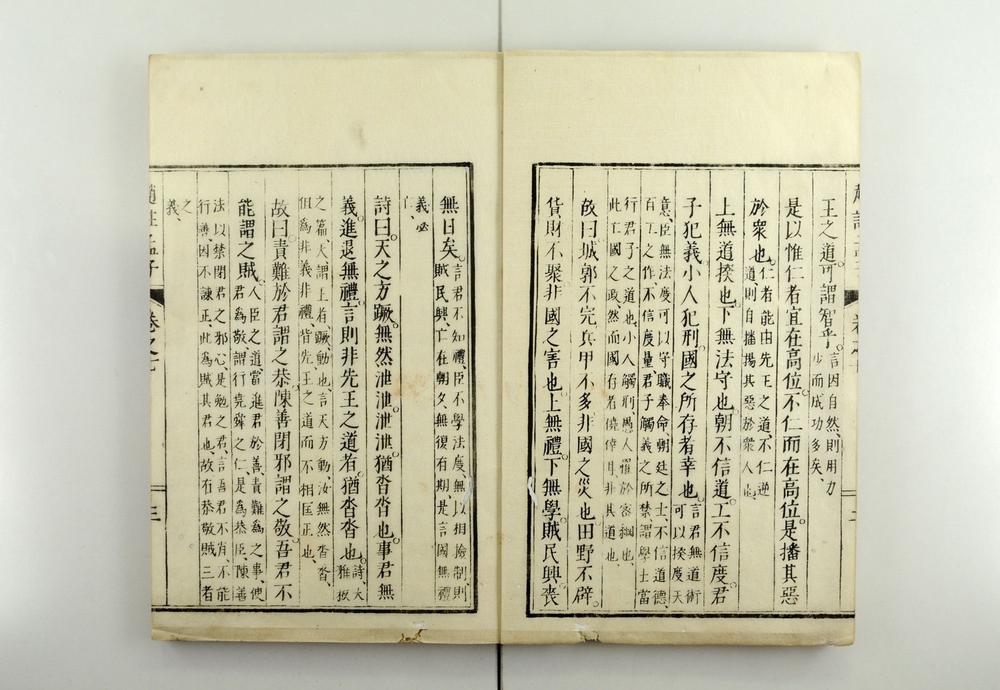 王之道可謂智乎言因自然則用力
少而成功多矣
是以惟仁者宜在高位不仁而在高位是播其惡
於衆也仁者能由先王之道不仁逆
道則自播揚其惡於衆人也
上無道揆也下無法守也朝不信道工不信度君
子犯義小人犯刑國之所存者幸也言君無道術
可以揆度天
意臣無法度可以守職奉命朝廷之士不信道德
百工之作不信度量君子觸義之所禁謂學士當
行君子之道也小人觸刑愚人罹於密網也
此亡國之政然而國存者僥倖耳非其道也
故曰城郭不完兵甲不多非國之災也田野不辟
貨財不聚非國之害也上無禮下無學賊民興喪
無日矣言君不知禮臣不學法度無以相檢制則
賊民興亡在朝夕無復有期是言國無禮
義必
亡
詩曰天之方蹶無然泄泄泄泄猶沓沓也事君無
義進退無禮言則非先王之道者猶沓沓也詩大
雅板
之篇天謂王者蹶動也言天方動汝無然沓沓
但為非義非禮背先王之道而不相匡正也
故曰責難於君謂之恭陳善閉邪謂之敬吾君不
能謂之賊人臣之道當進君於善責難為之事使
君為敬謂行堯舜之仁是為恭臣陳善
法以禁閉君之邪心是勉之君言吾君不肖不能
行善因不諫正此為賊其君也故有恭敬賊三者
之
義
趙註孟子
卷之七
三